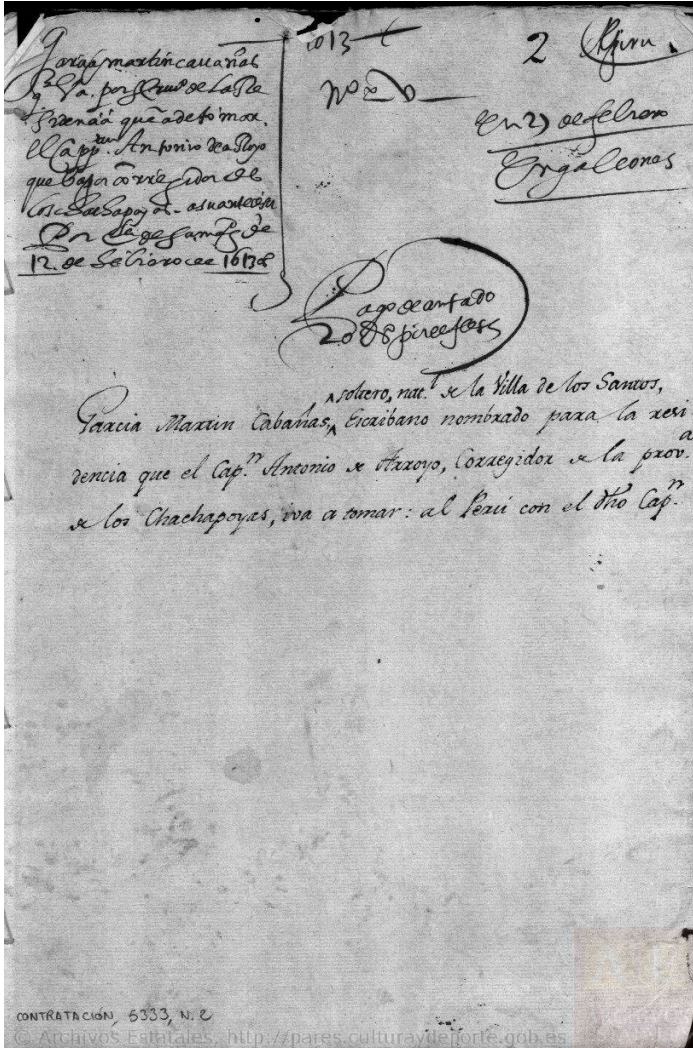 garcia martin cavañas
que va por scrivº de la Re
sidencia que a de tomar
el capp.an Antonio de arroyo
que va por corregidor de
los chachapoyas - a su antecesor
Por cedª de su magd de
12 de febrero de 1613 @s
1613
2
Piru
nº 2
en 27 de febrero
En galeones
Pago de
soltero, nat.l de la Villa de los Santos,
Garcia Martin Cabañas, ^ Escribano nombrado para la resi-
dencia que el Cap.n Antonio de Arroyo, Corregidor de la prov.a
de los Chachapoyas, iva a tomar: al Perú con el dho Cap.n
CONTRATACIÓN, 5333, N. 2
© Archivos Estatales, http://pares.culturaydeporte.gob.es